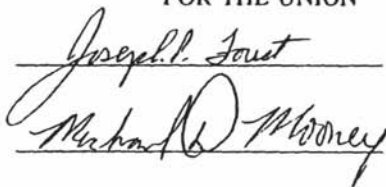 FOR THE UNION
Joseph P. Foust
Michael D Mooney